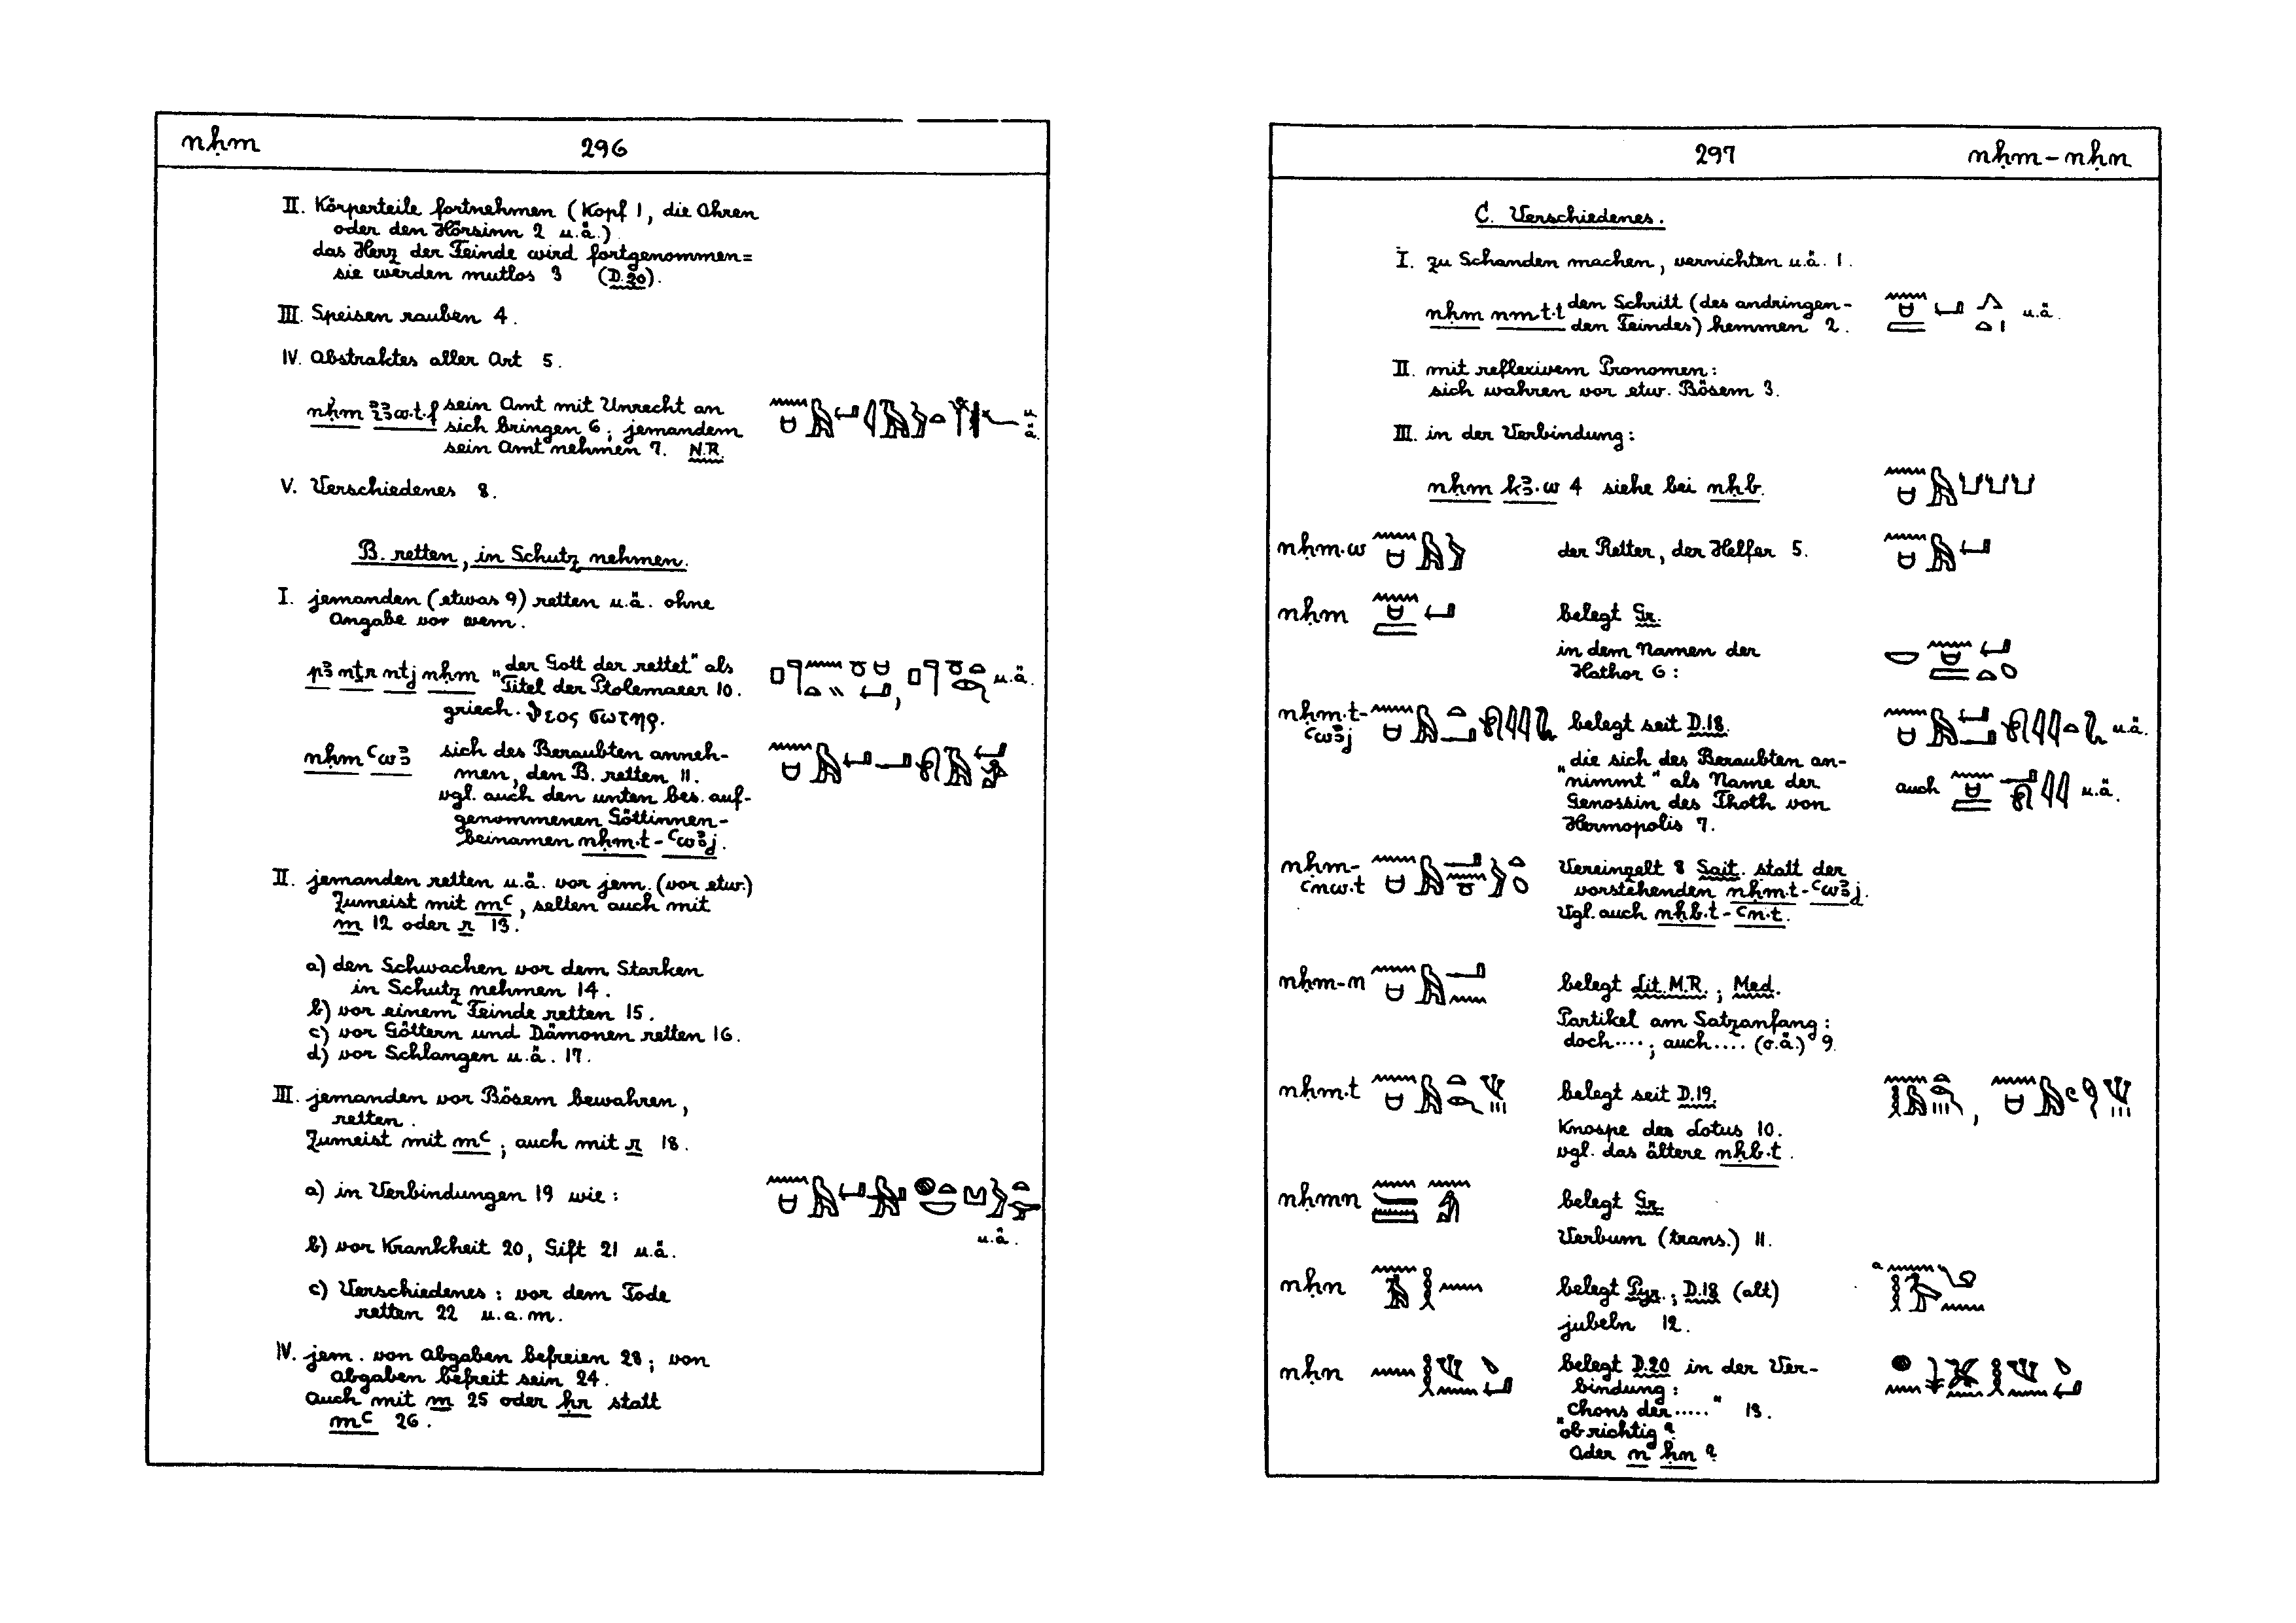 nḥm 296
II. Körperteile fortnehmen (Kopf 1, die Ohren
oder den Hörsinn 2 u.ä.)
das Herz der Feinde wird fortgenommen =
sie werden mutlos 3 (D.20).
III. Speisen rauben 4.
IV. Abstraktes aller Art 5.
nḥm sein Amt mit Unrecht an
sich bringen 6; jemandem u.ä.
sein Amt nehmen 7. N.R.
V. Verschiedenes 8.
B. retten, in Schutz nehmen.
I. jemanden (etwas 9) retten u.ä. ohne
Angabe vor wem.
pꜣ nṯr ntj nḥm „der Gott der rettet" als
Titel der Ptolemaeer 10. u.ä.
griech. ϑεος σωτηρ.
nḥm ꜥwꜣ sich des Beraubten anneh-
men, den B. retten 11.
vgl. auch den unten bes. auf-
genommenen Göttinnen-
beinamen nḥm.t-ꜥwꜣj.
II. jemanden retten u.ä. vor jem. (vor etw.)
Zumeist mit mꜥ, selten auch mit
m 12 oder r 13.
a) den Schwachen vor dem Starken
in Schutz nehmen 14.
b) vor einem Feinde retten 15.
c) vor Göttern und Dämonen retten 16.
d) vor Schlangen u.ä. 17.
III. jemanden vor Bösem bewahren,
retten.
Zumeist mit mꜥ; auch mit r 18.
a) in Verbindungen 19 wie:
u.ä.
b) vor Krankheit 20, Gift 21 u.ä.
c) Verschiedenes: vor dem Tode
retten 22 u.a.m.
IV. jem. von Abgaben befreien 23; von
Abgaben befreit sein 24.
Auch mit m 25 oder ḥr statt
mꜥ 26.
297 nḥm – nḥn
C. Verschiedenes.
I. zu Schanden machen, vernichten u.ä. 1.
nḥm nmt.t den Schritt (des andringen-
den Feindes) hemmen 2. u.ä.
II. mit reflexivem Pronomen:
sich wahren vor etw. Bösem 3.
III. in der Verbindung:
nḥm kꜣ.w 4 siehe bei nḥb.
nḥm.w der Retter, der Helfer 5.
nḥm belegt Gr.
in dem Namen der
Hathor 6:
nḥm.t-
ꜥwꜣj belegt seit D.18. u.ä.
„die sich des Beraubten an-
nimmt" als Name der auch u.ä.
Genossin des Thoth von
Hermopolis 7.
nḥm-
ꜥnw.t Vereinzelt 8 Sait. statt der
vorstehenden nḥm.t-ꜥwꜣj.
Vgl. auch nḥb.t-ꜥn.t.
nḥm-n belegt Lit. M.R.; Med.
Partikel am Satzanfang:
doch....; auch.... (o.ä.) 9.
nḥm.t belegt seit D.19.
Knospe des Lotus 10.
vgl. das ältere nḥb.t.
nḥmn belegt Gr.
Verbum (trans.) 11.
nḥn belegt Pyr.; D.18 (alt) a
jubeln 12.
nḥn belegt D.20 in der Ver-
bindung:
„Chons der....." 13.
ob richtig?
Oder n ḥn?